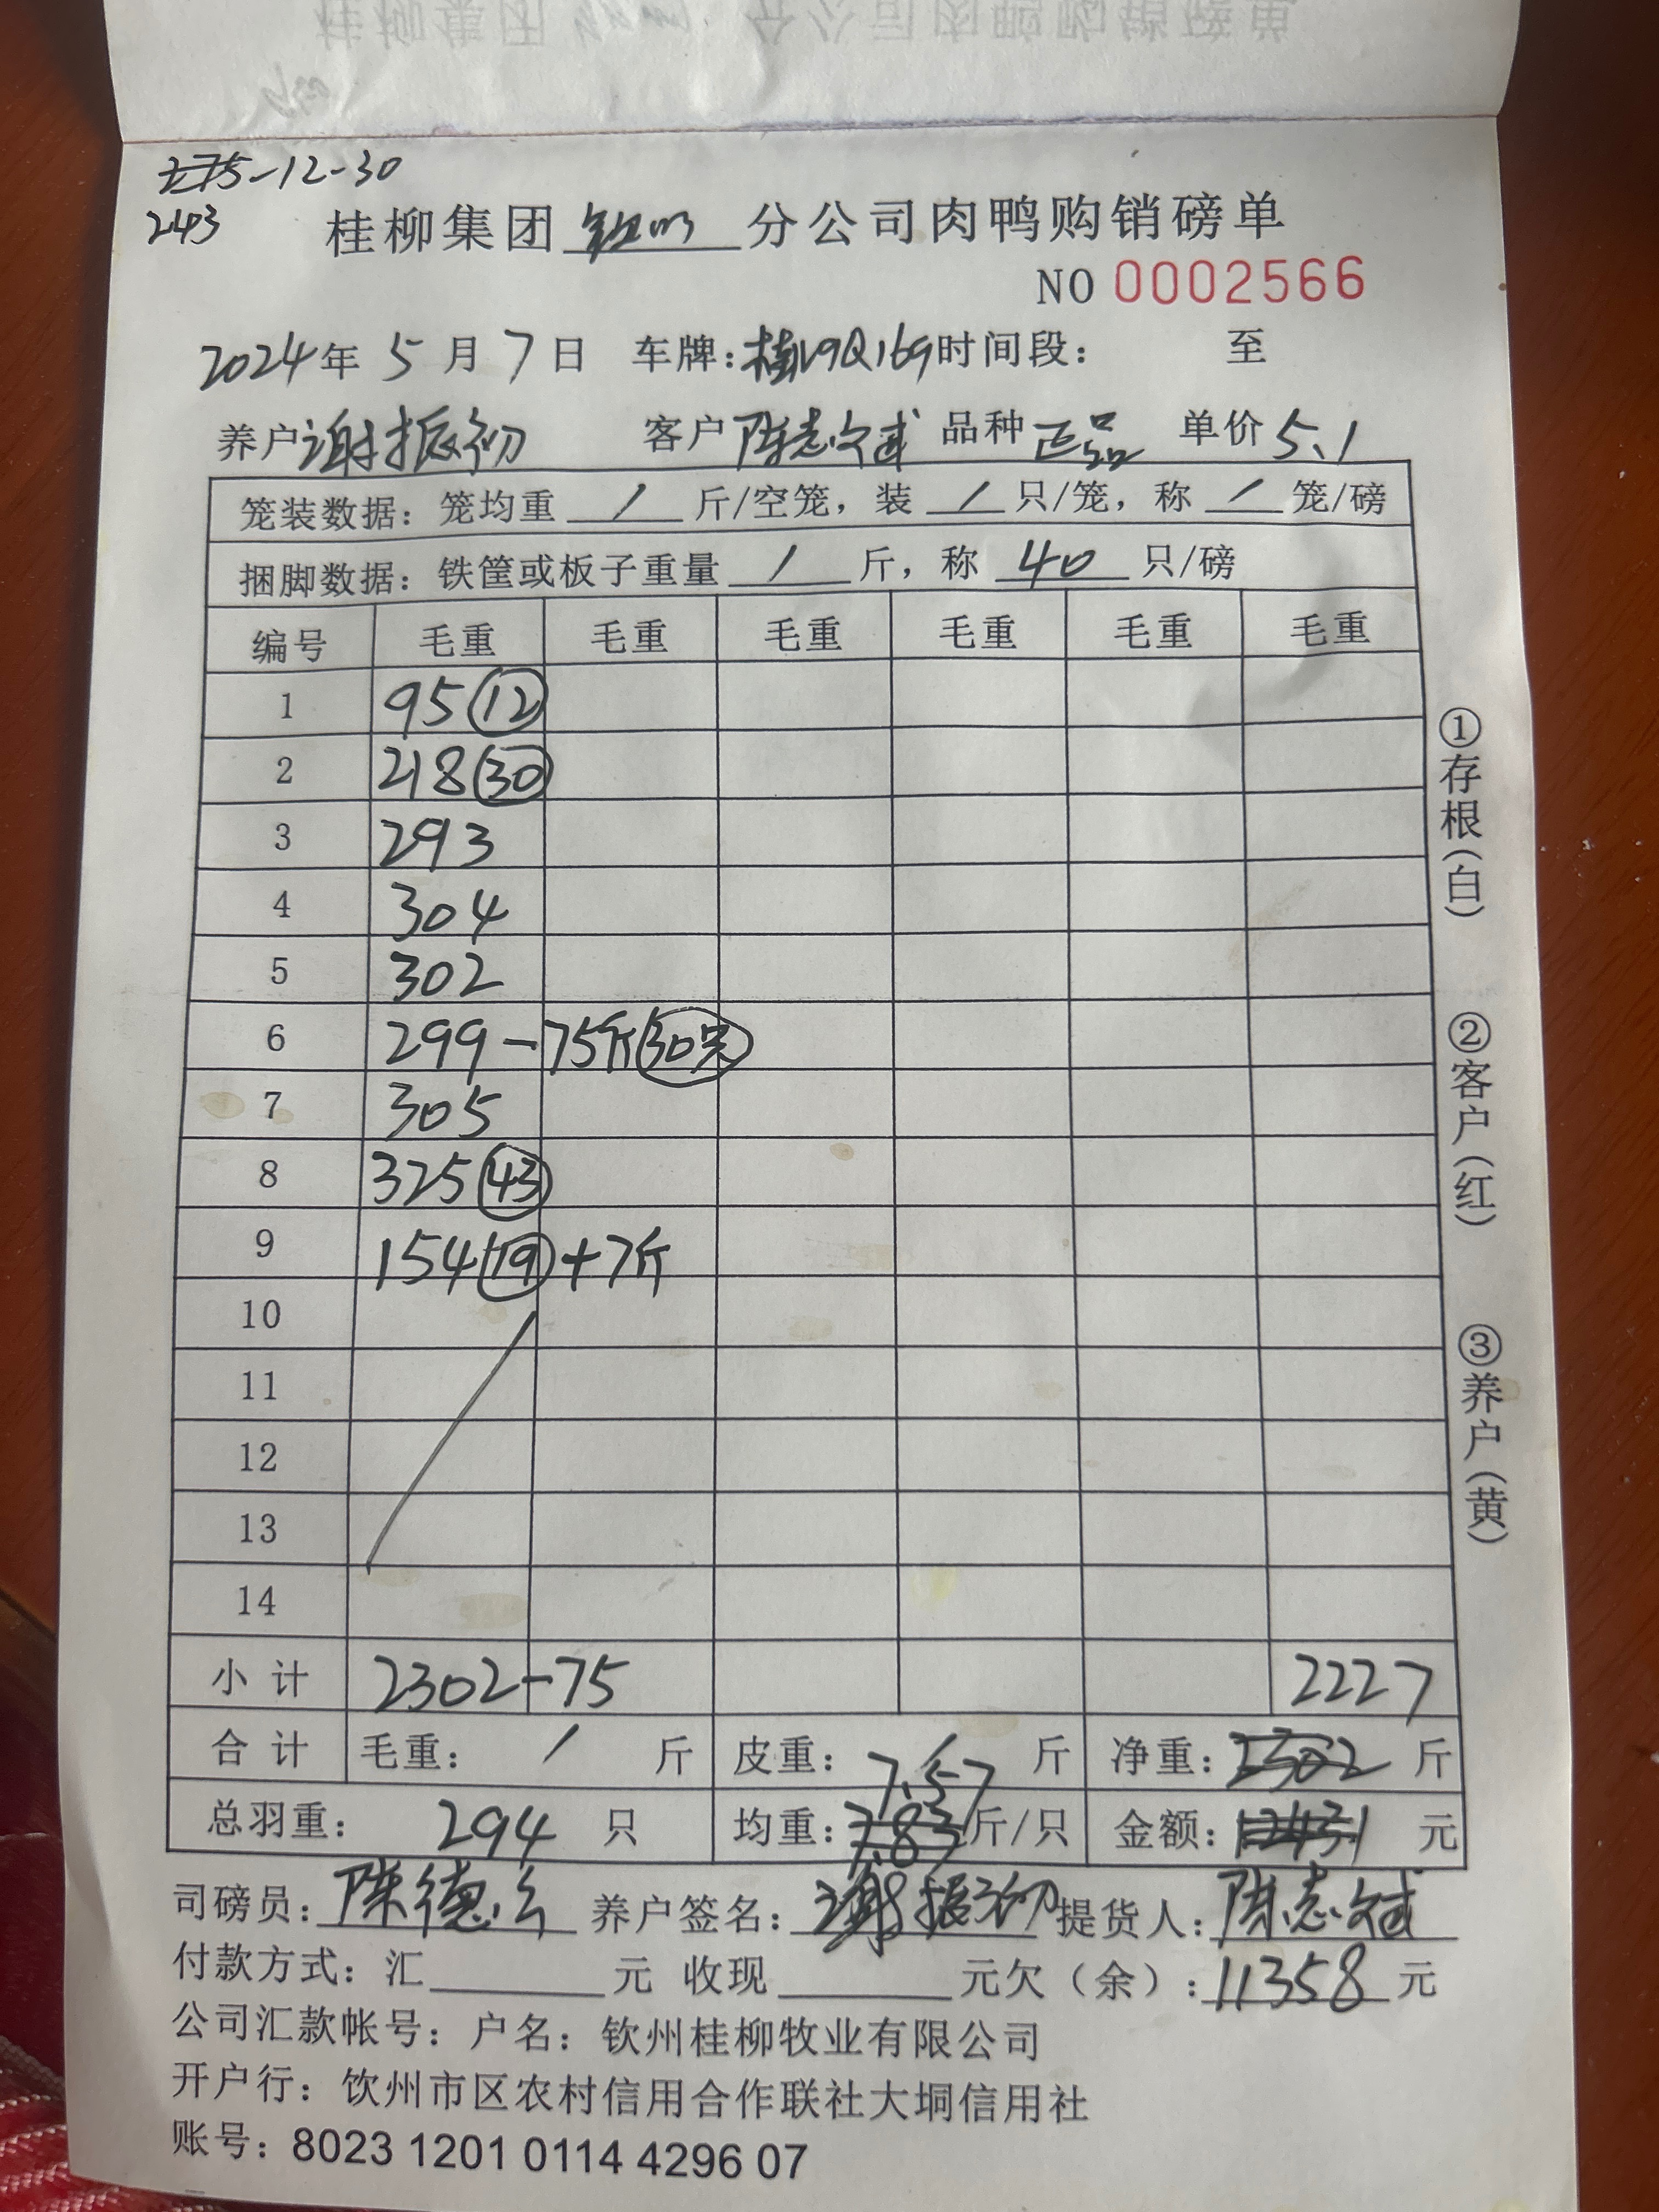 -12-30
243
桂柳集团 钦州 分公司肉鸭购销磅单
NO 0002566
2024年 5月 7日 车牌:桂N9Q169 时间段: 至
养户 谢振初 客户 陈志斌 品种 正品 单价 5.1
笼装数据: 笼均重 / 斤/空笼, 装 / 只/笼, 称 / 笼/磅
捆脚数据: 铁筐或板子重量 / 斤, 称 40 只/磅
编号 毛重 毛重 毛重 毛重 毛重 毛重
1 95 12
2 218 30
3 293
4 304
5 302
6 299 - 75斤 30只
7 305
8 325 43
9 154 19 + 7斤
10
11
12
13
14
小计 2302-75 2227
合计 毛重: / 斤 皮重: / 斤 净重: 2302 斤
7.57
总羽重: 294 只 均重: 7.83 斤/只 金额: 元
司磅员: 养户签名: 谢振初 提货人: 陈志斌
付款方式: 汇 元 收现 元欠(余): 11358 元
公司汇款帐号: 户名: 钦州桂柳牧业有限公司
开户行: 钦州市区农村信用合作联社大垌信用社
账号: 8023 1201 0114 4296 07
①存根(白)
②客户(红)
③养户(黄)